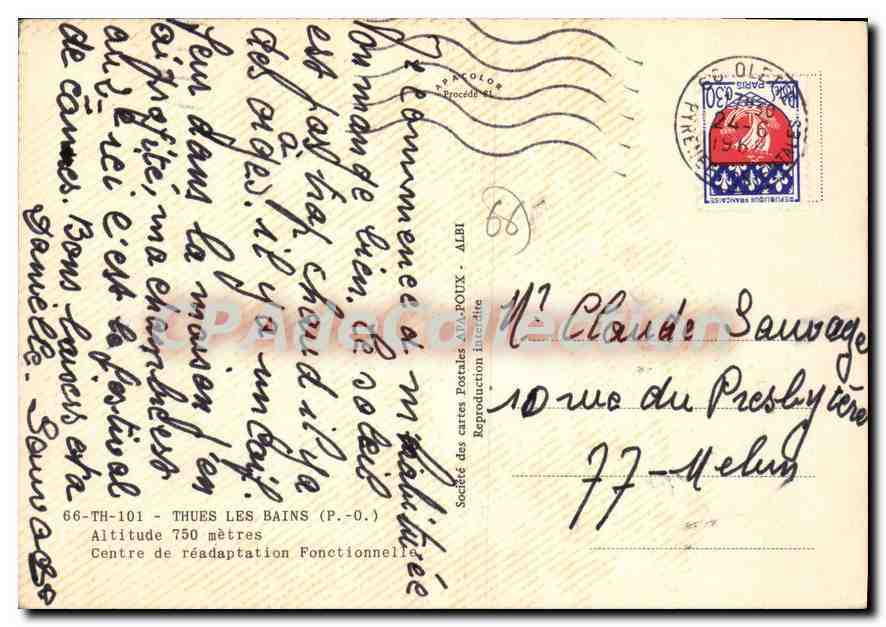 Je commence à m'habituée
on mange bien. Le soleil
est pas trop chaud il y a
des orages. il y a un
dans la maison j'en
ai profité, ma chambre est
au 2e ici c'est le festival
de cannes. Bons baisers à ta
Danielle. Sauvage
APACOLOR
Procédé 81
66-TH-101 - THUES LES BAINS (P.-O.)
Altitude 750 mètres
Centre de réadaptation Fonctionnelle
Société des cartes Postales APA-POUX - ALBI
Reproduction interdite
66
66 OLETTE
24-6
PYRENEES ORIENTALES
0,30
PARIS
REPUBLIQUE FRANCAISE
Mr Claude Sauvage
10 rue du Presbytère
77-Melun
CPAdeCollection